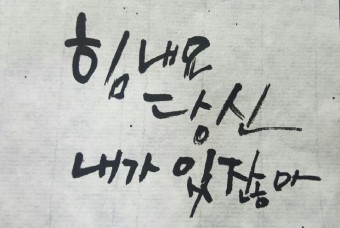 힘내요
당신
내가 있잖아